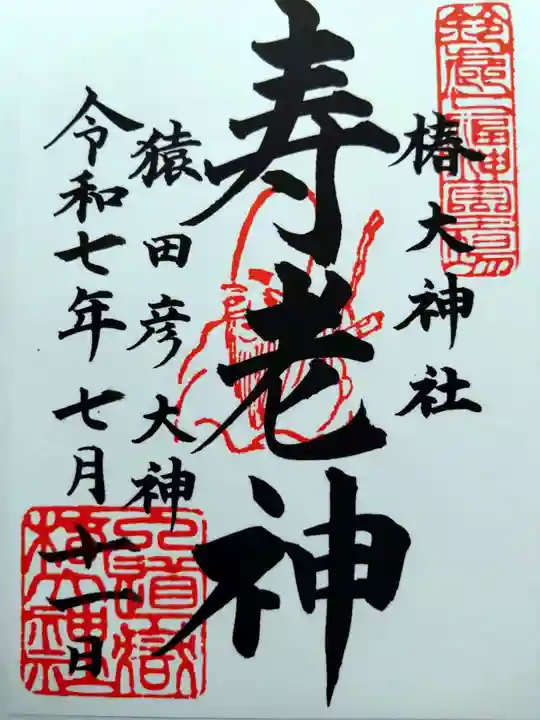 椿大神社
寿老神
猿田彦大神
令和七年七月十一日